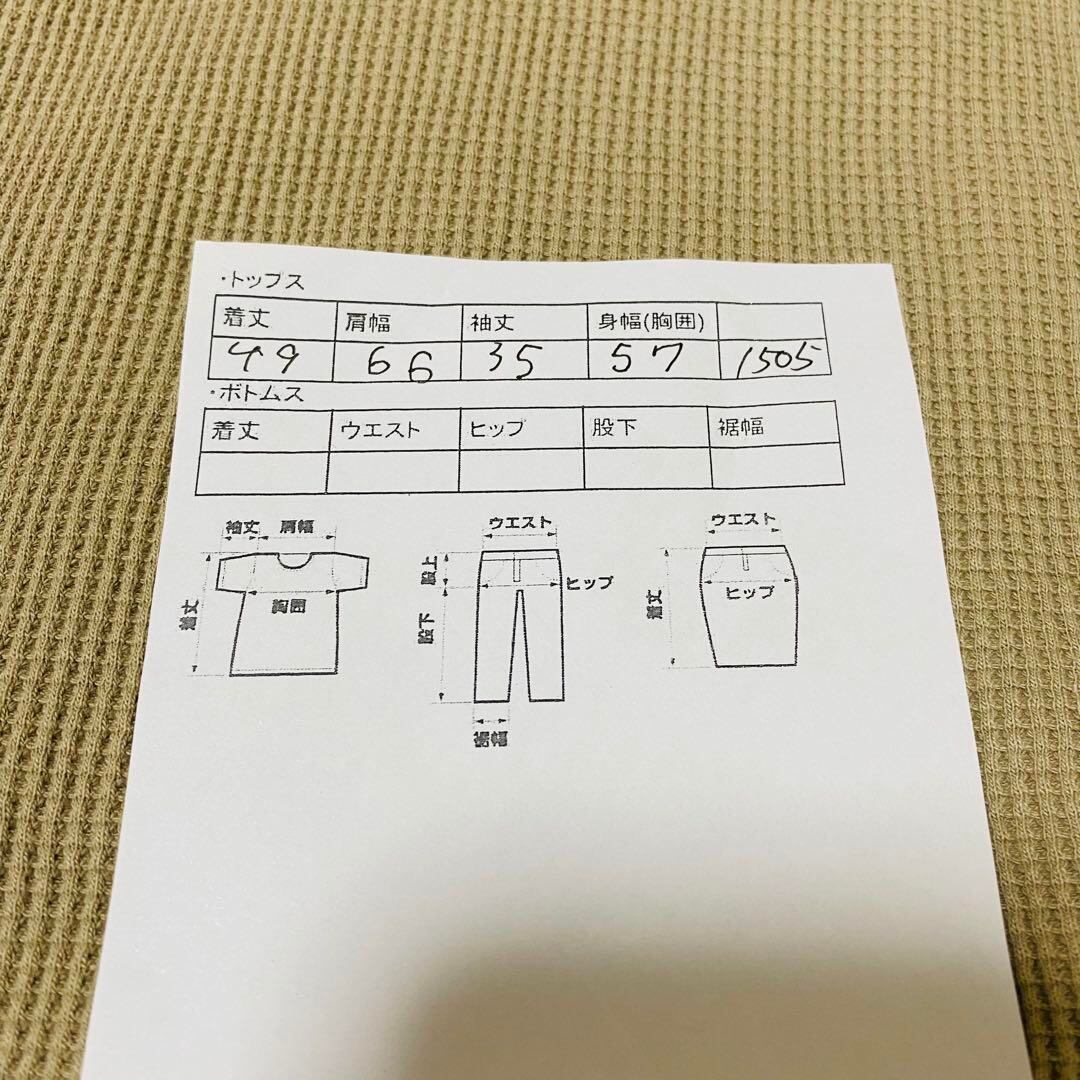 ・トップス
着丈 肩幅 袖丈 身幅(胸囲)
49 66 35 57 1505
・ボトムス
着丈 ウエスト ヒップ 股下 裾幅
袖丈 肩幅
胸囲
着丈
ウエスト
股上
ヒップ
股下
裾幅
ウエスト
ヒップ
着丈